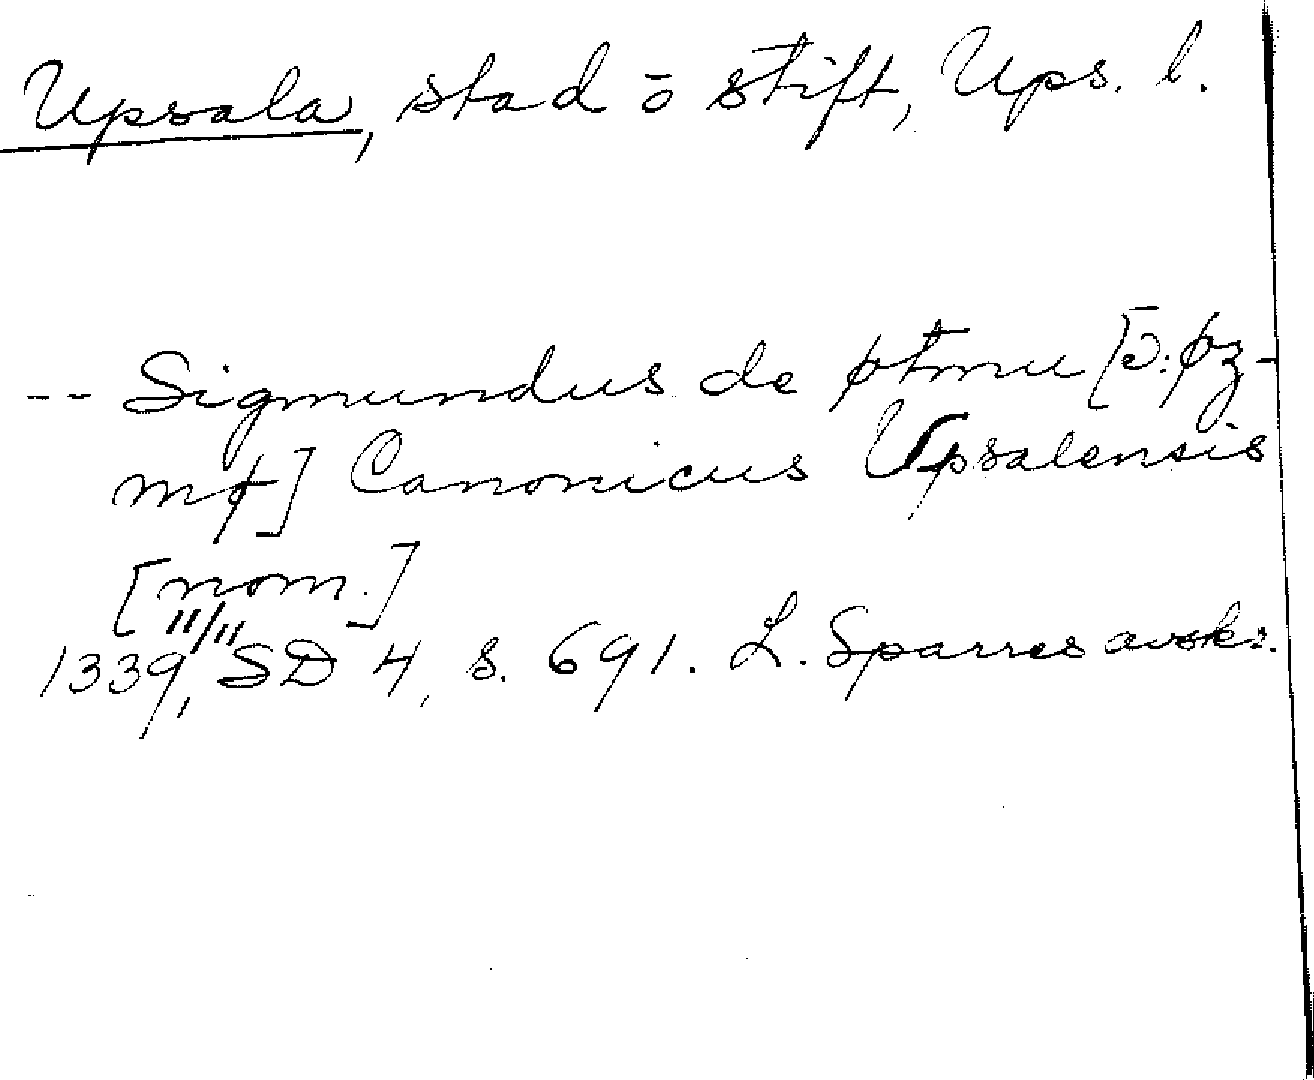 Upsala, stad o stift, Ups. l.
-- Sigmundus de ptmu [ɔ: pz-
mt] Canonicus Upsalensis
[nom.]
1339 11/11, SD 4, s. 691. L. Sparres avskr.